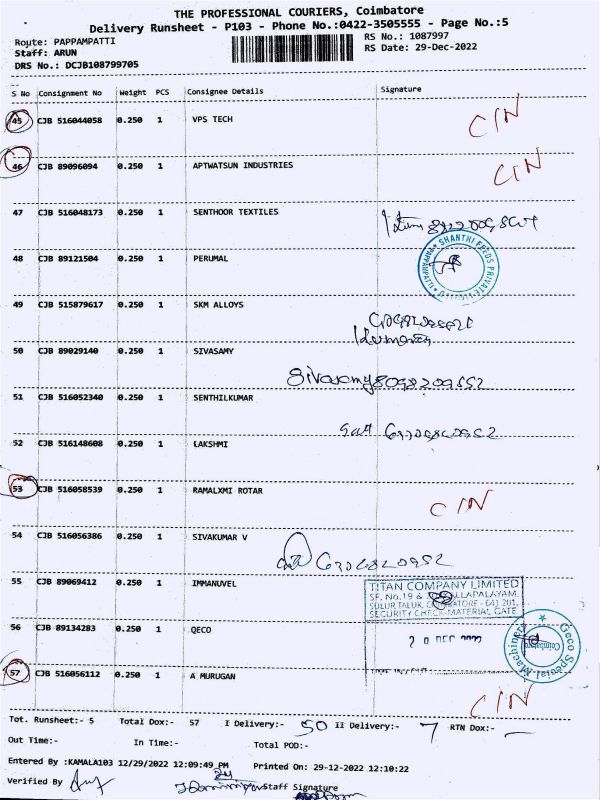 THE PROFESSIONAL COURIERS, Coimbatore
Delivery Runsheet - P103 - Phone No.:0422-3505555 - Page No.:5
Route: PAPPAMPATTI RS No.: 1087997
Staff: ARUN RS Date: 29-Dec-2022
DRS No.: DCJB108799705
S No Consignment No Weight PCS Consignee Details Signature
45 CJB 516044058 0.250 1 VPS TECH CIN
46 CJB 89096094 0.250 1 APTWATSUN INDUSTRIES CIN
47 CJB 516048173 0.250 1 SENTHOOR TEXTILES
48 CJB 89121504 0.250 1 PERUMAL
SHANTHI FEEDS PRIVATE
49 CJB 515879617 0.250 1 SKM ALLOYS
50 CJB 89029140 0.250 1 SIVASAMY
Sivasamy 8098209552
51 CJB 516052340 0.250 1 SENTHILKUMAR
52 CJB 516148608 0.250 1 LAKSHMI
53 CJB 516058539 0.250 1 RAMALXMI ROTAR CIN
54 CJB 516056386 0.250 1 SIVAKUMAR V
55 CJB 89069412 0.250 1 IMMANUVEL
TITAN COMPANY LIMITED
SF. No.19 &
SULUR TALUK, COIMBATORE - 641 201.
SECURITY CHECK-MATERIAL GATE
56 CJB 89134283 0.250 1 QECO
Geco Special Machinery Coimbatore
57 CJB 516056112 0.250 1 A MURUGAN CIN
Tot. Runsheet:- 5 Total Dox:- 57 I Delivery:- 50 II Delivery:- 7 RTN Dox:- -
Out Time:- In Time:- Total POD:-
Entered By :KAMALA103 12/29/2022 12:09:49 PM Printed On: 29-12-2022 12:10:22
Verified By Staff Signature